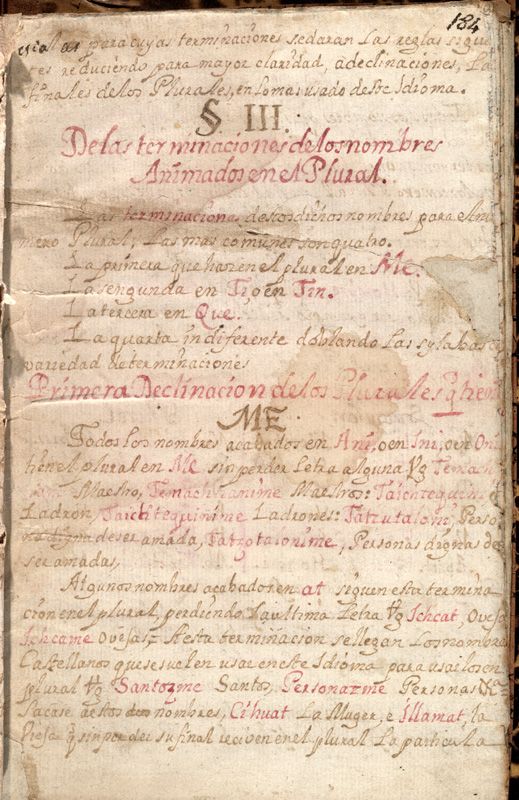 184
para cuyas terminaciones sedaran Las reglas sigue
res reduciendo para mayor claridad, a declinaciones, La
finales delos Plurales, en lo mas usado deste Idioma.
§ III.
Delas terminaciones delos nombres
Animados en el Plural.
Las terminaciones destos dichos nombres para el nu
mero Plural, Las mas comunes son quatro.
La primera que hazen el plural en Me.
La segunda en Ti, o en Tin.
La tercera en Que.
La quarta indiferente doblando Las sylabas, c
variedad de terminaciones
Primera Declinacion delos Plurales q̃ tien
ME.
Todos los nombres acabados en Ani, o en Ini, o en On
tienen el plural en Me sin perder Letra alguna Vg Temach
Maestro, Temachtianime Maestros: Taichtequini
Ladron Taichtequinime Ladrones: Tatzutaloni, Perso
na digna de ser amada, Tatzotalonime, Personas dignas de
ser amadas,
Algunos nombres acabados en at siguen esta termina
cion en el plural, perdiendo La ultima Letra Vg Ichcat, Oveja
Ichcame Ovejas, A esta terminacion se llegan Los nombre
Castellanos que se suelen usar en este Idioma para usarlos en
plural Vg Santozme Santos, Personazme Personas
Sacase destos dos nombres, Cihuat La Muger, e Illamat, la
Vieja q̃ sin perder su final reciven en el plural La particula